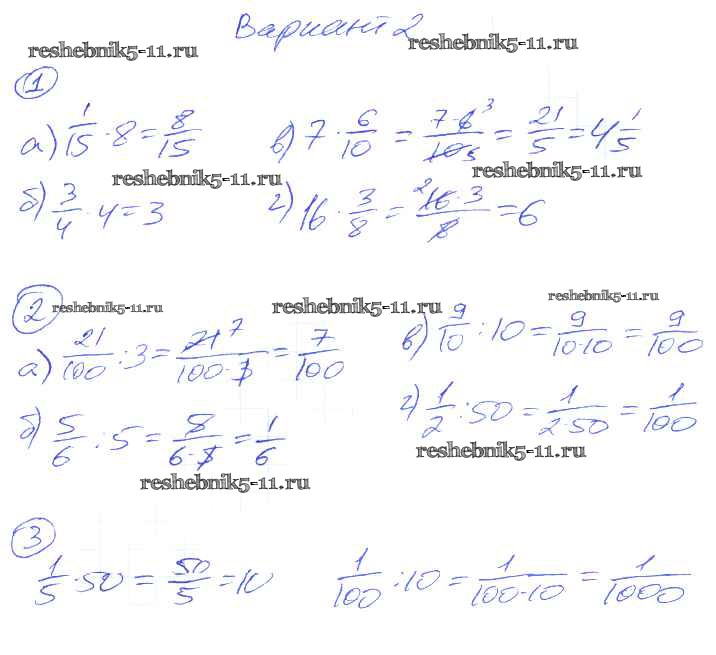 Вариант 2
reshebnik5-11.ru reshebnik5-11.ru
1
а) 1/15 · 8 = 8/15 в) 7 · 6/10 = 7·6 3/10 5 = 21/5 = 4 1/5
reshebnik5-11.ru reshebnik5-11.ru
б) 3/4 · 4 = 3 г) 16 · 3/8 = 2 16·3/8 = 6
2
reshebnik5-11.ru reshebnik5-11.ru reshebnik5-11.ru
а) 21/100 : 3 = 21 7/100·3 = 7/100 в) 9/10 : 10 = 9/10·10 = 9/100
б) 5/6 : 5 = 5/6·5 = 1/6 г) 1/2 : 50 = 1/2·50 = 1/100
reshebnik5-11.ru reshebnik5-11.ru
3
1/5 · 50 = 50/5 = 10 1/100 : 10 = 1/100·10 = 1/1000